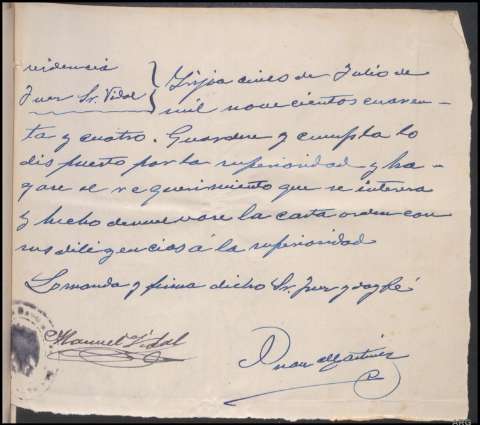 videncia
Juez Sr. Vidal
Grijoa cinco de Julio de
mil novecientos cuaren-
ta y cuatro. Guardese y cumpla lo
dispuesto por la superioridad y ha-
gase el requerimiento que se interesa
y hecho devuelvase la carta orden con
sus diligencias á la superioridad
Lo manda y firma dicho Sr. Juez y doy fé
Manuel Vidal
Juan Martinez
ARG